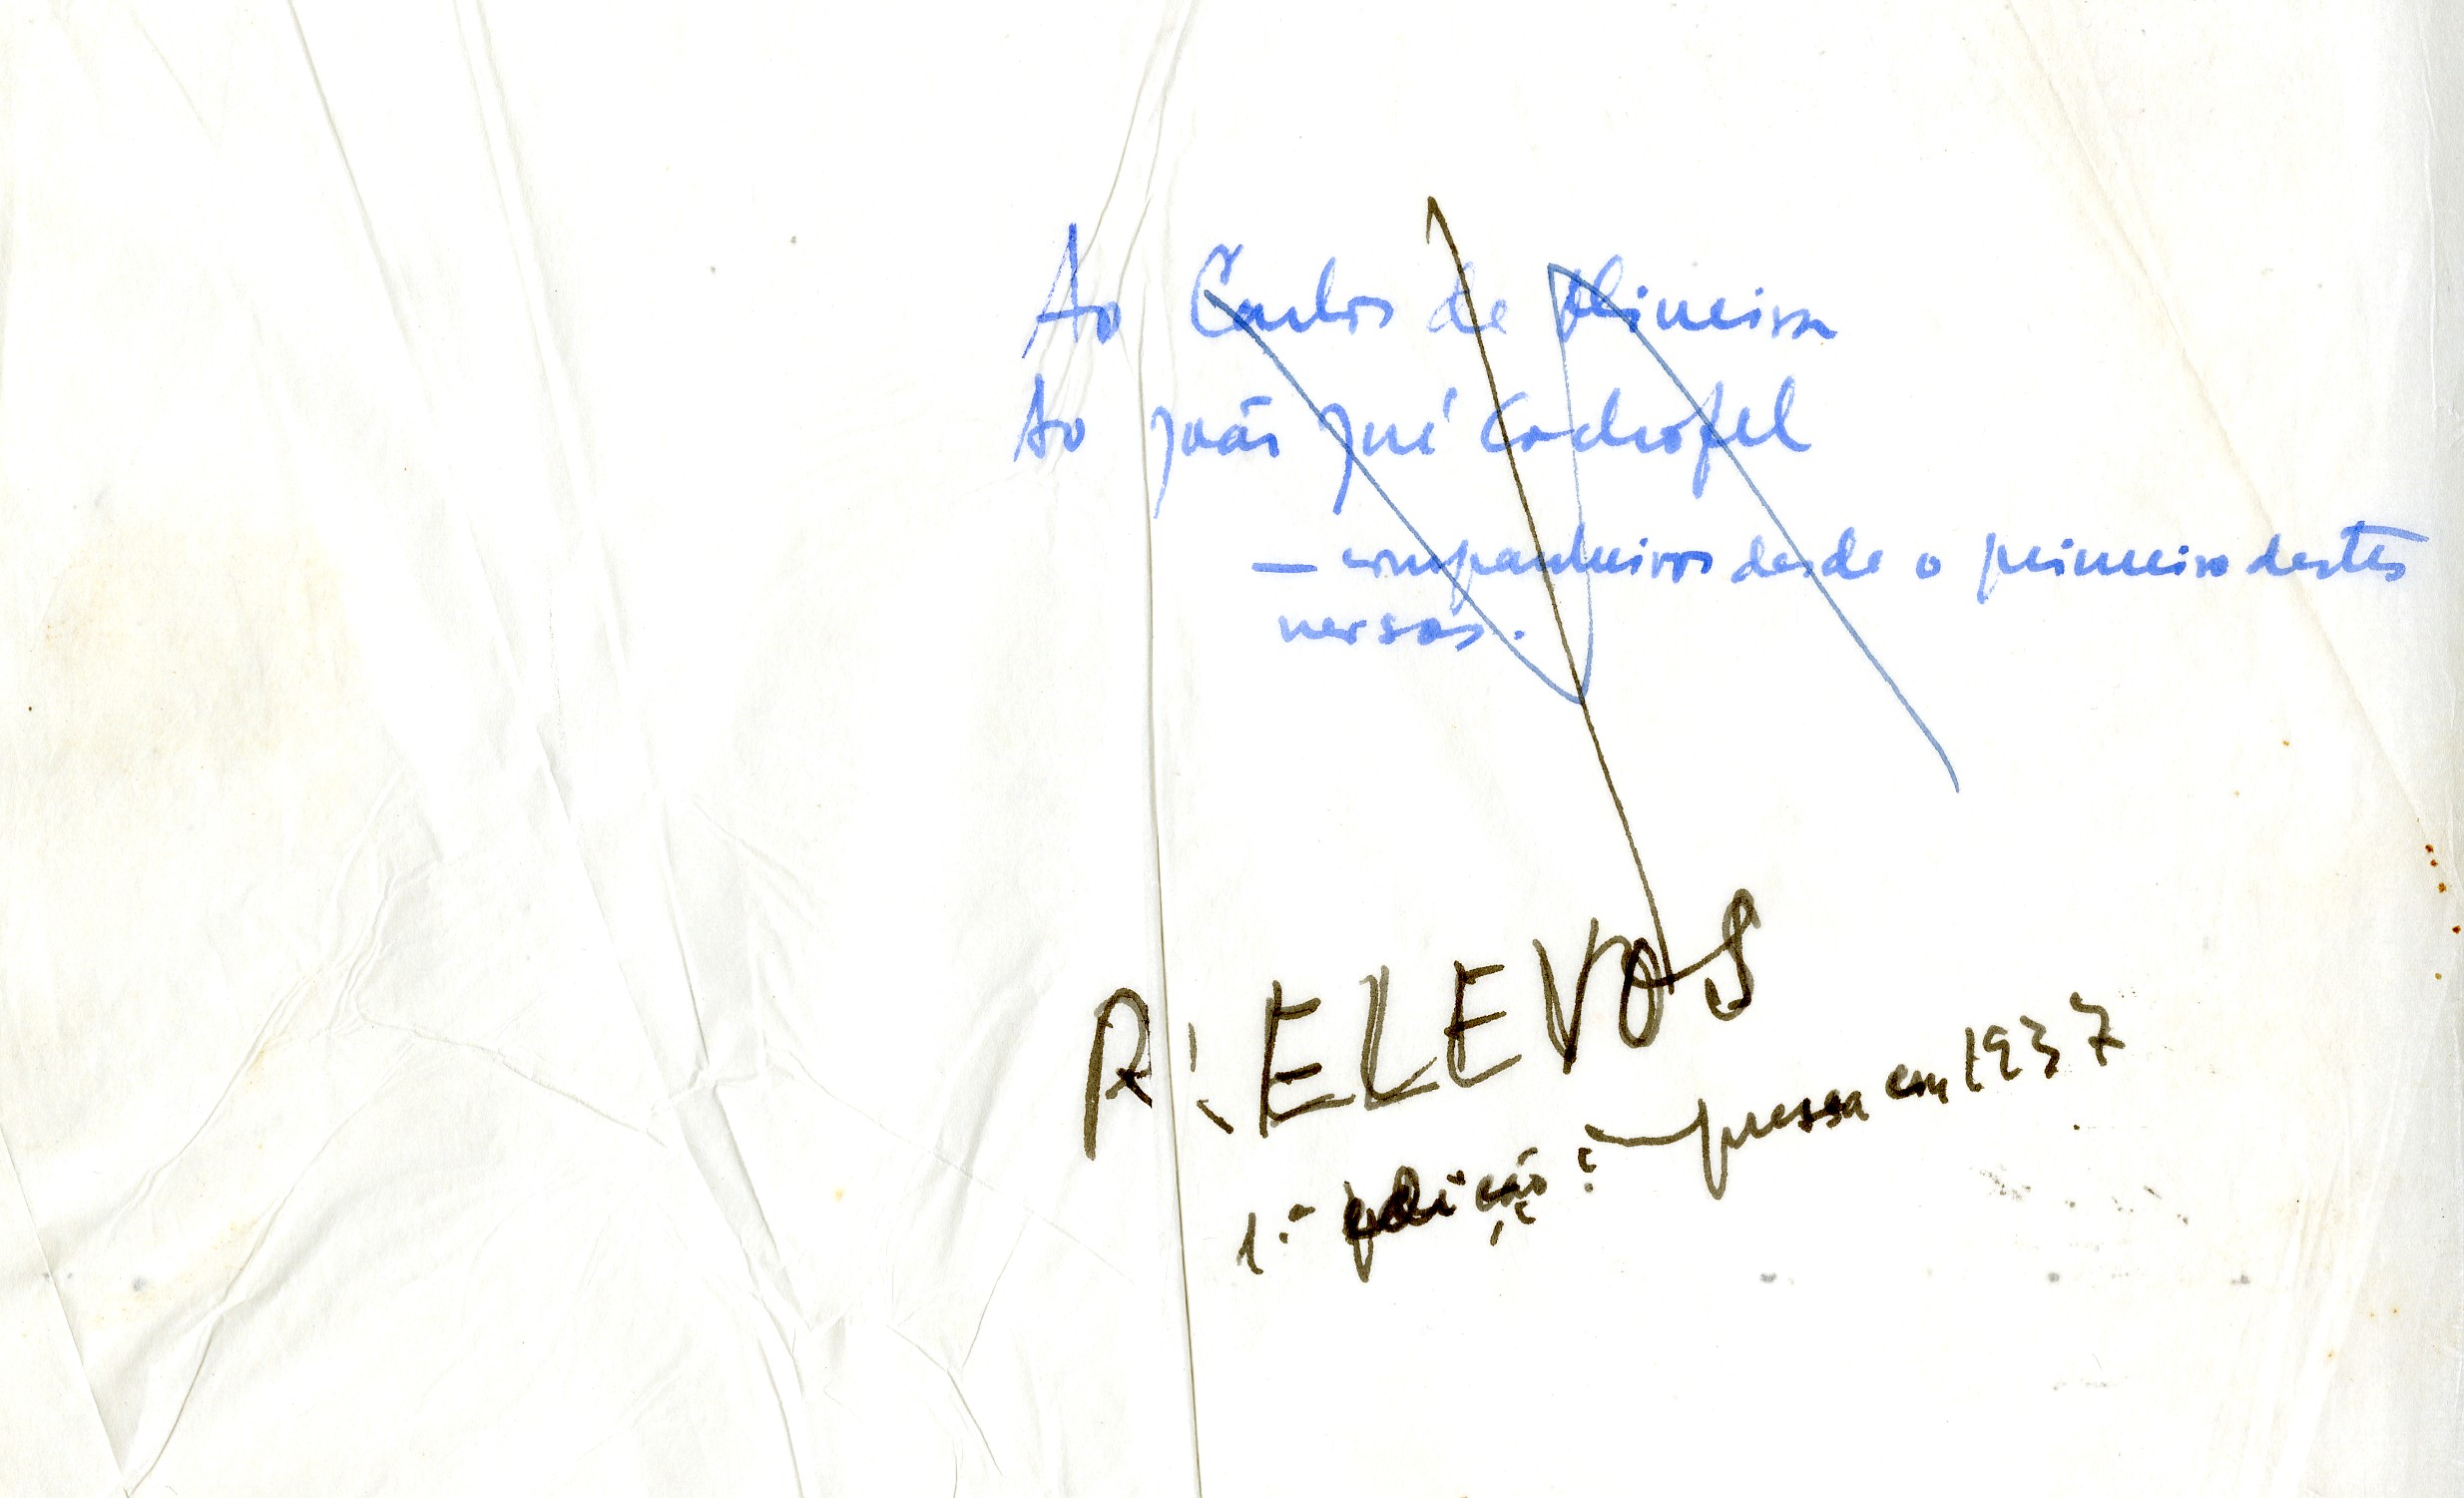 Ao Carlos de Oliveira
Ao João José Cochofel
— companheiros desde o primeiro destes
versos.
RELEVOS
1.ª edição: pressa em 1937